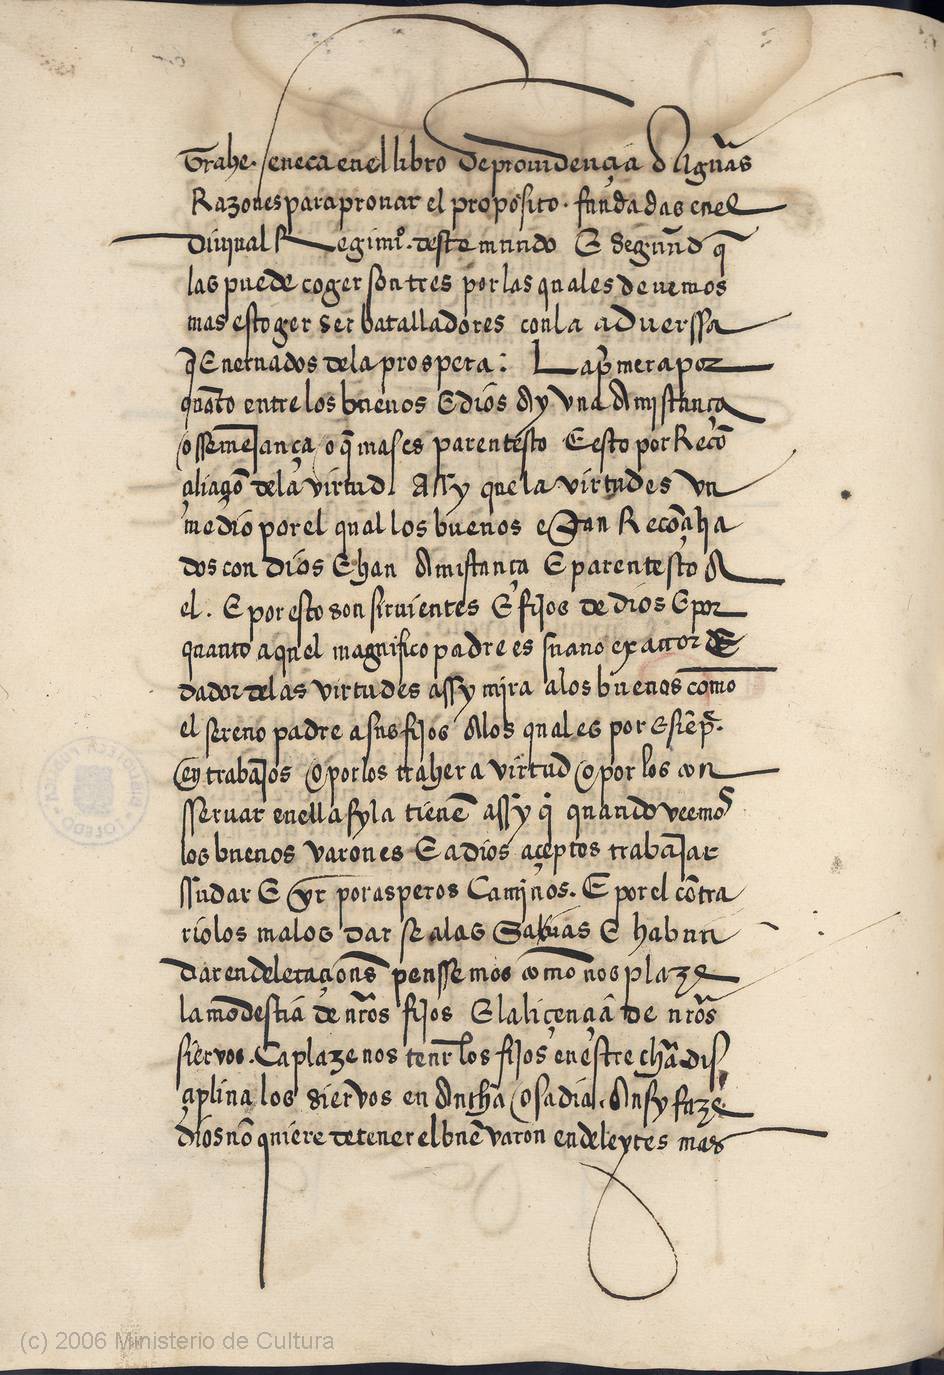 Trahe seneca en el libro de prouidençia Algũas
Razones para prouar el proposito. fundadas en el
diuinal Regimio. deste mundo E segund q̃
las puede coger son tres por las quales deuemos
mas escoger ser batalladores con la aduerssa
q̃ Eneruados de la prospera: La pimera por
quãto entre los buenos E dios Ay vna Amistança
o ssemejança o q̃ mas es parentesco E esto por Recõ
çiliaçõ de la virtud. Assy que la virtud es vn
medio por el qual los buenos e Recõçilia
dos con dios E han Amistança E parentesco A
el. E por esto son siruientes E fijos de dios E por
quanto aquel magnifico padre es suano exactor E
dador de las virtudes assy mira a los buenos como
el sereno padre a sus fijos A los quales por siẽpr̃.
en trabajos o por los traher a virtud o por los con
sseruar en ella sy la tienẽ assy q̃ quando veemos
los buenos varones E a dios açeptos trabajar
ssudar E yr por asperos Caminos. E por el cõtra
rio los malos dar se a las Sabias E habun
dar en deletaçiones penssemos como nos plaze
la modestia de nr̃os fijos E la liçençia de nr̃os
siervos. Ca plaze nos tenr̃ los fijos en estrecha dis
çiplina los siervos en Ancha osadia. Ansy faze
dios nõ quiere detener el buẽ varon en deleytes mas
(c) 2006 Ministerio de Cultura